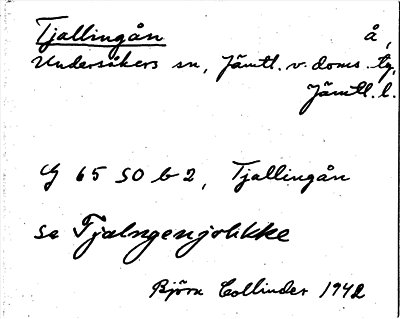 Tjallingån å,
Undersåkers sn, Jämtl. v. doms. tg,
Jämtl. l.
G 65 SO b 2, Tjallingån
se Tjalngenjohkke
Björn Collinder 1942